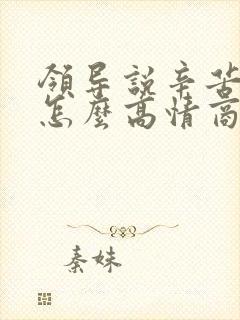 領导説辛苦
怎麼高情商
秦妹